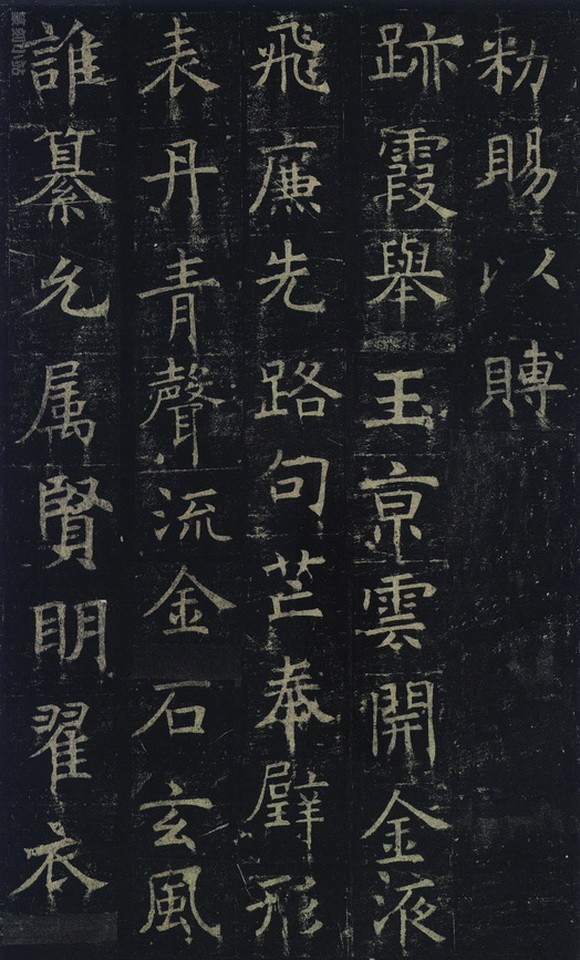 勑賜以賻
跡霞舉玉亰雲開金液
飛廉先路句芒奉辟形
表丹青聲流金石玄風
誰纂允属賢明翟衣